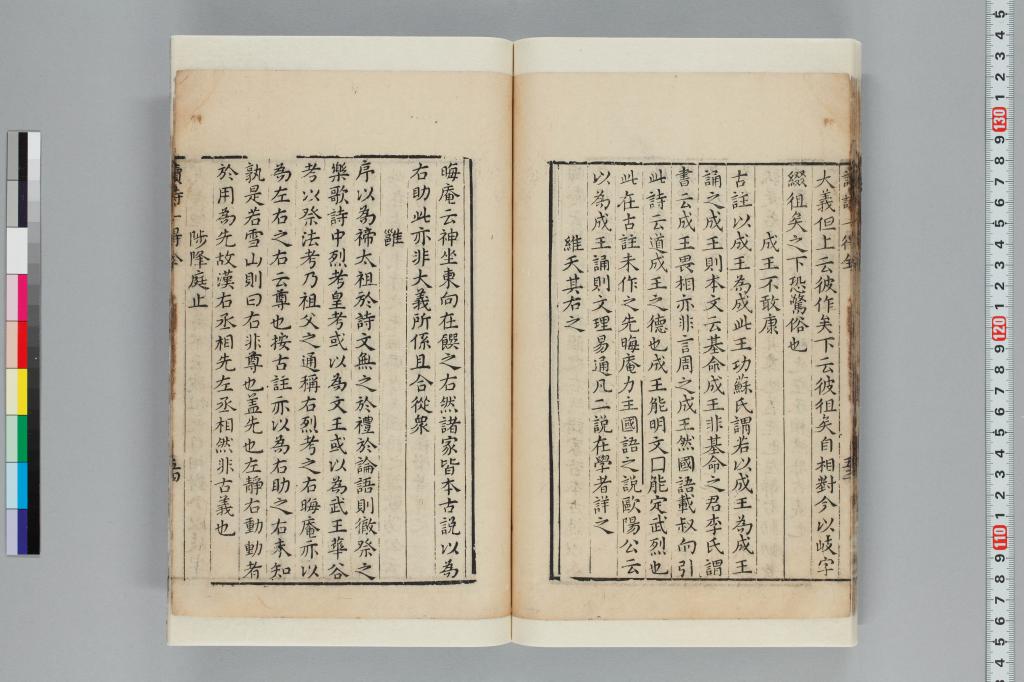 大義但上云彼作矣下云彼徂矣自相對今以岐字
綴徂矣之下恐驚俗也
成王不敢康
古註以成王為成此王功蘇氏謂若以成王為成王
誦之成王則本文云基命成王非基命之君李氏謂
書云成王畏相亦非言周之成王然國語載叔向引
此詩云道成王之德也成王能明文口能定武烈也
此在古註未作之先晦庵力主國語之説歐陽公云
以為成王誦則文理易通凡二説在學者詳之
維天其右之
晦庵云神坐東向在饌之右然諸家皆本古説以為
右助此亦非大義所係且合從衆
雝
序以為禘太祖於詩文無之於禮於論語則徹祭之
樂歌詩中烈考皇考或以為文王或以為武王華谷
考以祭法考乃祖父之通稱右烈考之右晦庵亦以
為左右之右云尊也按古註亦以為右助之右未知
孰是若雪山則曰右非尊也盖先也左靜右動動者
於用為先故漢右丞相先左丞相然非古義也
陟降庭止
讀詩一得